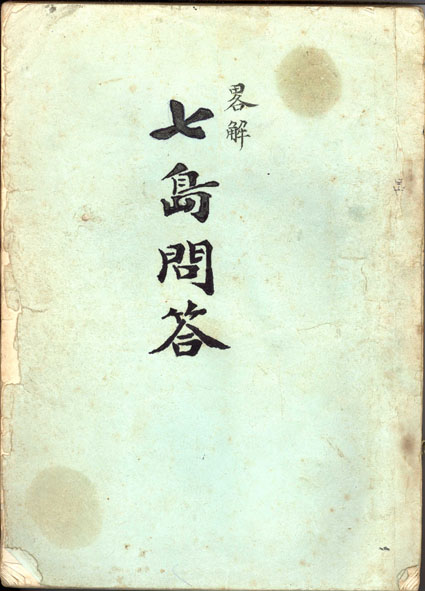 畧解
七島問答